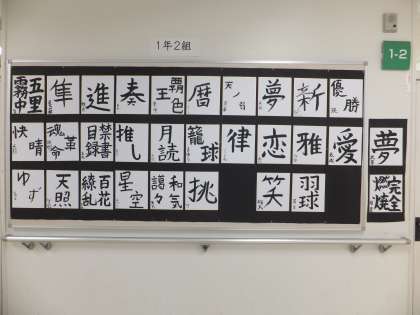 1年2組
1-2
五里霧中
隼
進
奏
覇王色
暦
天ノ弱
夢
新
優勝
快晴
革命魂
禁書目録
推し
月読
籠球
律
恋
雅
愛
夢
ゆず
天照
百花繚乱
星空
和気藹々
挑
笑
羽球
完全燃焼